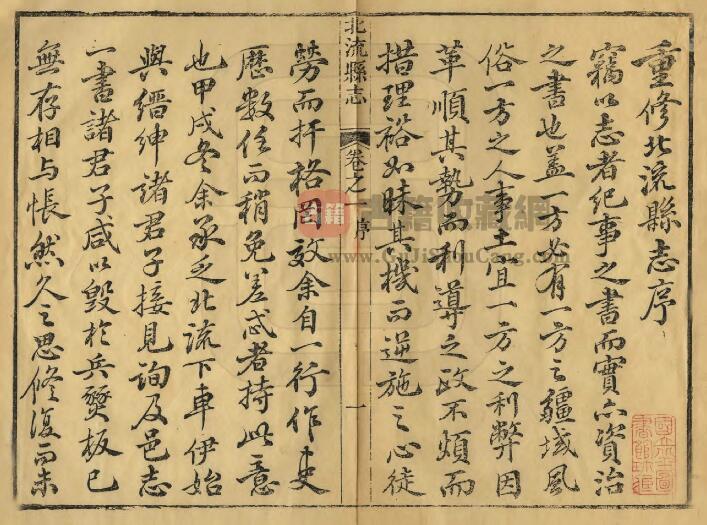 重修北流縣志序
竊以志者紀事之書而實亦資治
之書也蓋一方必有一方之疆域風
俗一方之人事土宜一方之利弊因
革順其勢而利導之政不煩而
措理裕如昧其機而逆施之心徒
北流縣志
卷之一
序
一
勞而扞格罔效余自一行作吏
歷數任而稍免差忒者持此意
也甲戌冬余承乏北流下車伊始
與縉紳諸君子接見詢及邑志
一書諸君子咸以毀於兵燹板已
無存相与悵然久之思修復而未
古籍
书籍收藏網
GuJiShouCang.com